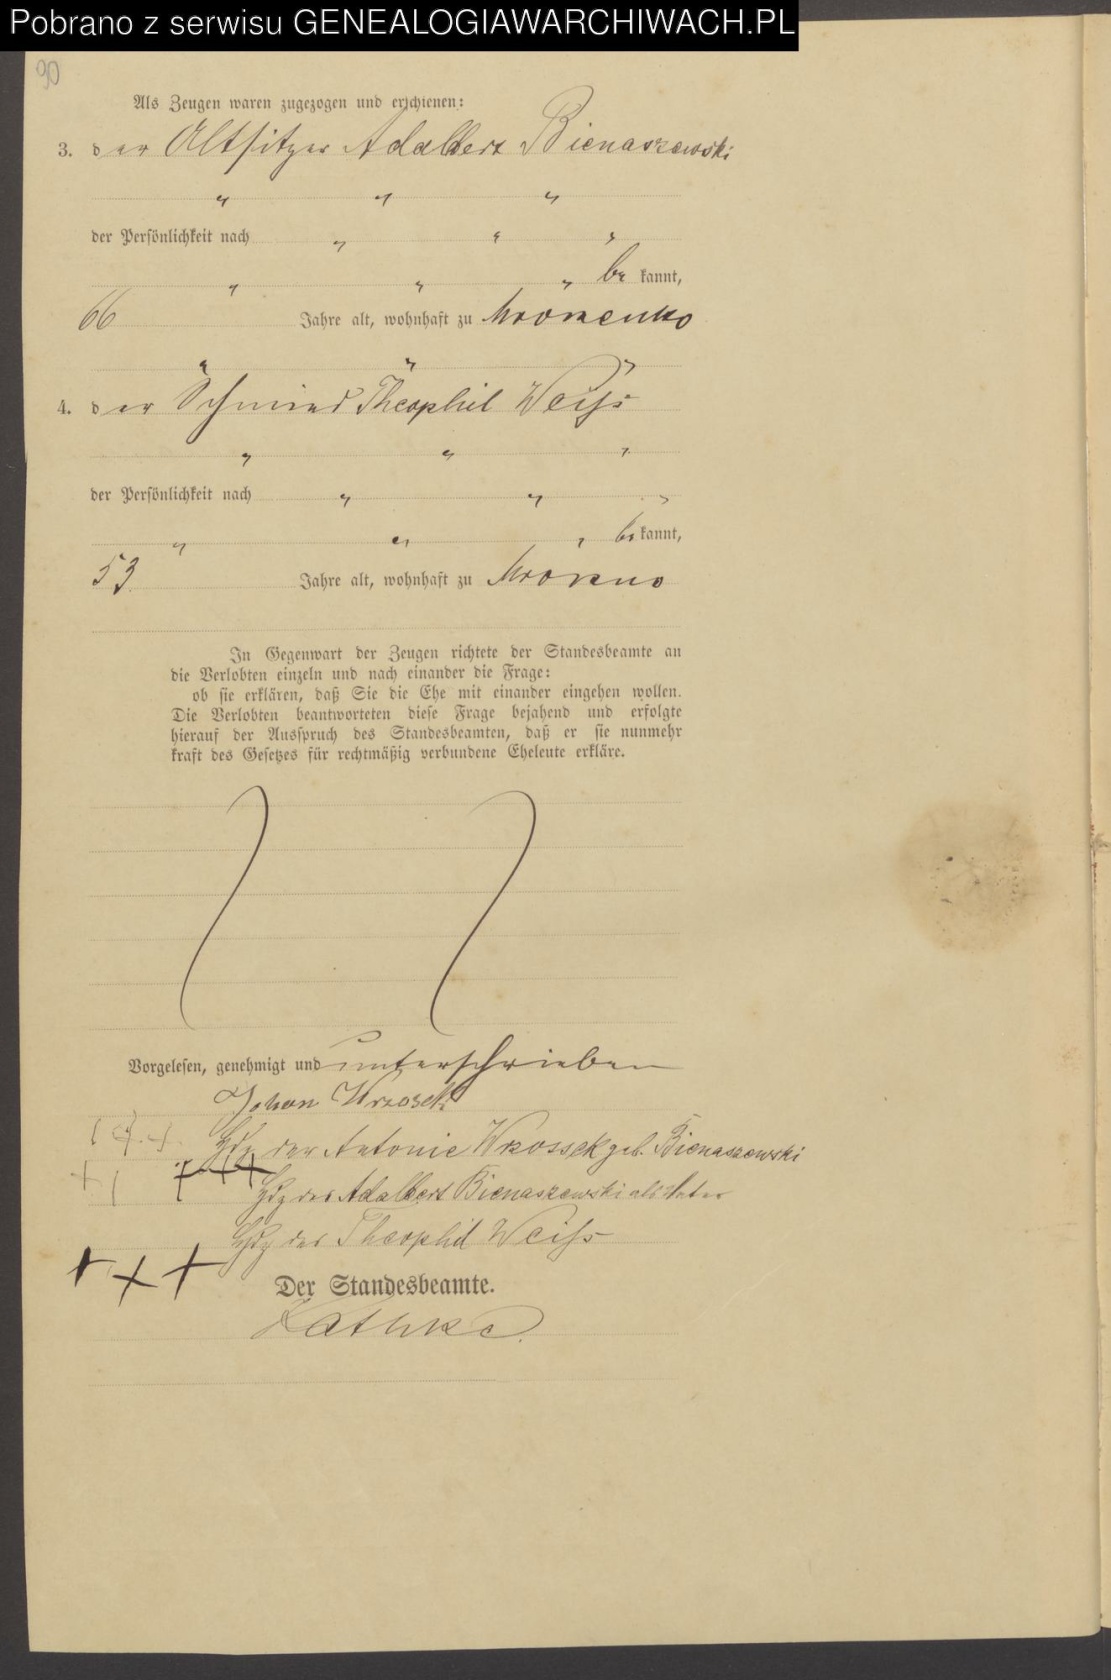 Pobrano z serwisu GENEALOGIAWARCHIWACH.PL
90
Als Zeugen waren zugezogen und erschienen:
3. der Altsitzer Adalbert Bienaszewski
" " "
der Persönlichkeit nach " " "
" " " be kannt,
66 Jahre alt, wohnhaft zu
" " "
4. der Schmied Theophil Weiß
" " "
der Persönlichkeit nach " " "
" " " be kannt,
53 Jahre alt, wohnhaft zu Mrozno
In Gegenwart der Zeugen richtete der Standesbeamte an
die Verlobten einzeln und nach einander die Frage:
ob sie erklären, daß Sie die Ehe mit einander eingehen wollen.
Die Verlobten beantworteten diese Frage bejahend und erfolgte
hierauf der Ausspruch des Standesbeamten, daß er sie nunmehr
kraft des Gesetzes für rechtmäßig verbundene Eheleute erkläre.
Vorgelesen, genehmigt und unterschrieben
Johan Wrzosek
Hdz der Antonie Wrzossek geb. Bienaszewski
+++
Hdz des Adalbert Bienaszewski als Vater
Hdz des Theophil Weiß
+++
Der Standesbeamte.
Rathke.